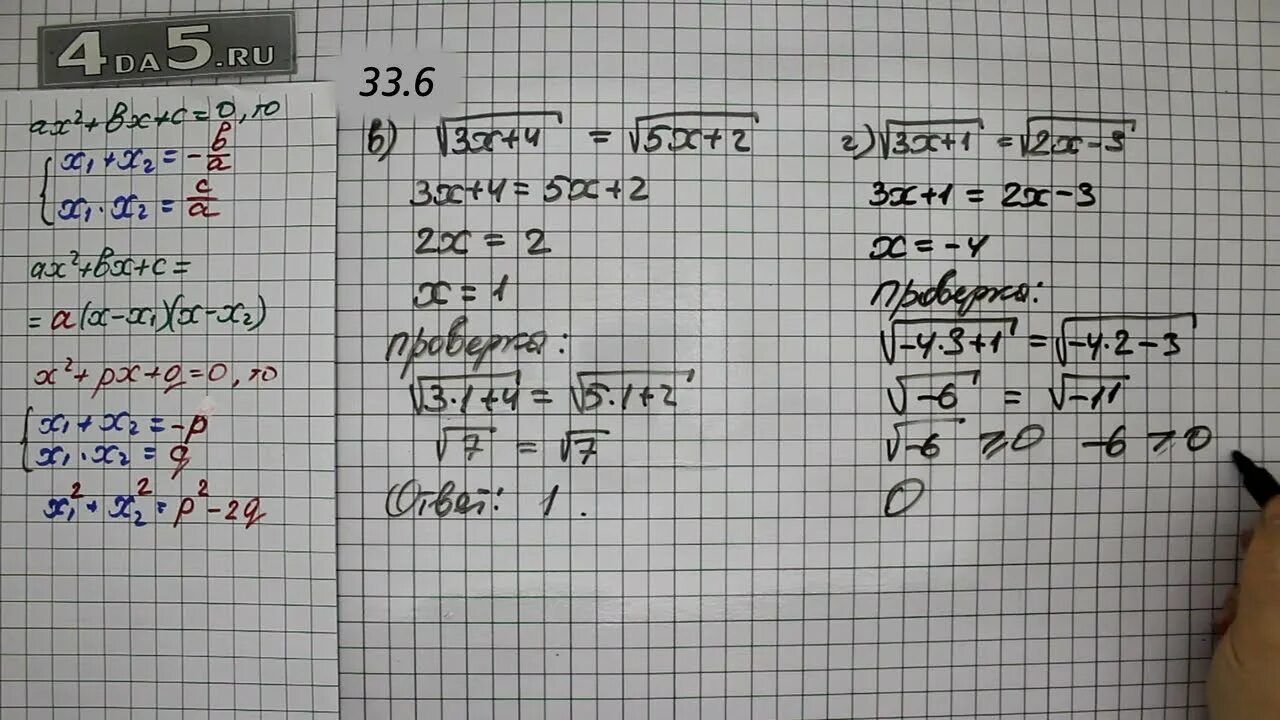 4DA5.RU
ax²+bx+c=0, то
x₁+x₂=-b/a
x₁·x₂=c/a
ax²+bx+c=
=a(x-x₁)(x-x₂)
x²+px+q=0, то
x₁+x₂=-p
x₁·x₂=q
x₁²+x₂²=p²-2q
33.6
в) √3x+4 = √5x+2
3x+4=5x+2
2x=2
x=1
проверка:
√3·1+4=√5·1+2
√7=√7
Ответ: 1.
г) √3x+1=√2x-3
3x+1=2x-3
x=-4
проверка:
√-4·3+1=√-4·2-3
√-6=√-11
√-6⩾0 -6⩾0
О